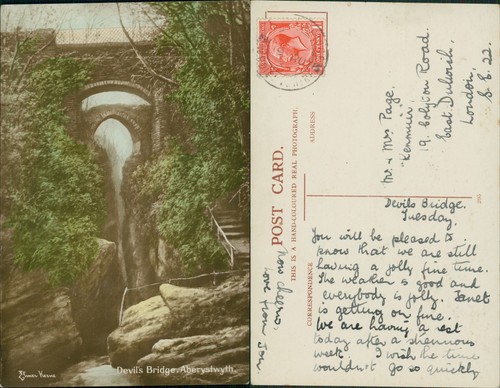 Devil's Bridge. Aberystwyth.
POST CARD.
THIS IS A HAND-COLOURED REAL PHOTOGRAPH.
CORRESPONDENCE
ADDRESS
Mr. & Mrs Page.
"Kenmuir,
19. Colyton Road.
East Dulwich,
London,
S. E. 22.
Devils Bridge.
Tuesday.
You will be pleased to
know that we are still
having a jolly fine time.
The weather is good and
everybody is jolly. Janet
is getting on fine.
We are having a rest
today after a strenuous
week. I wish the time
wouldn't go so quickly
now cheerio
love from